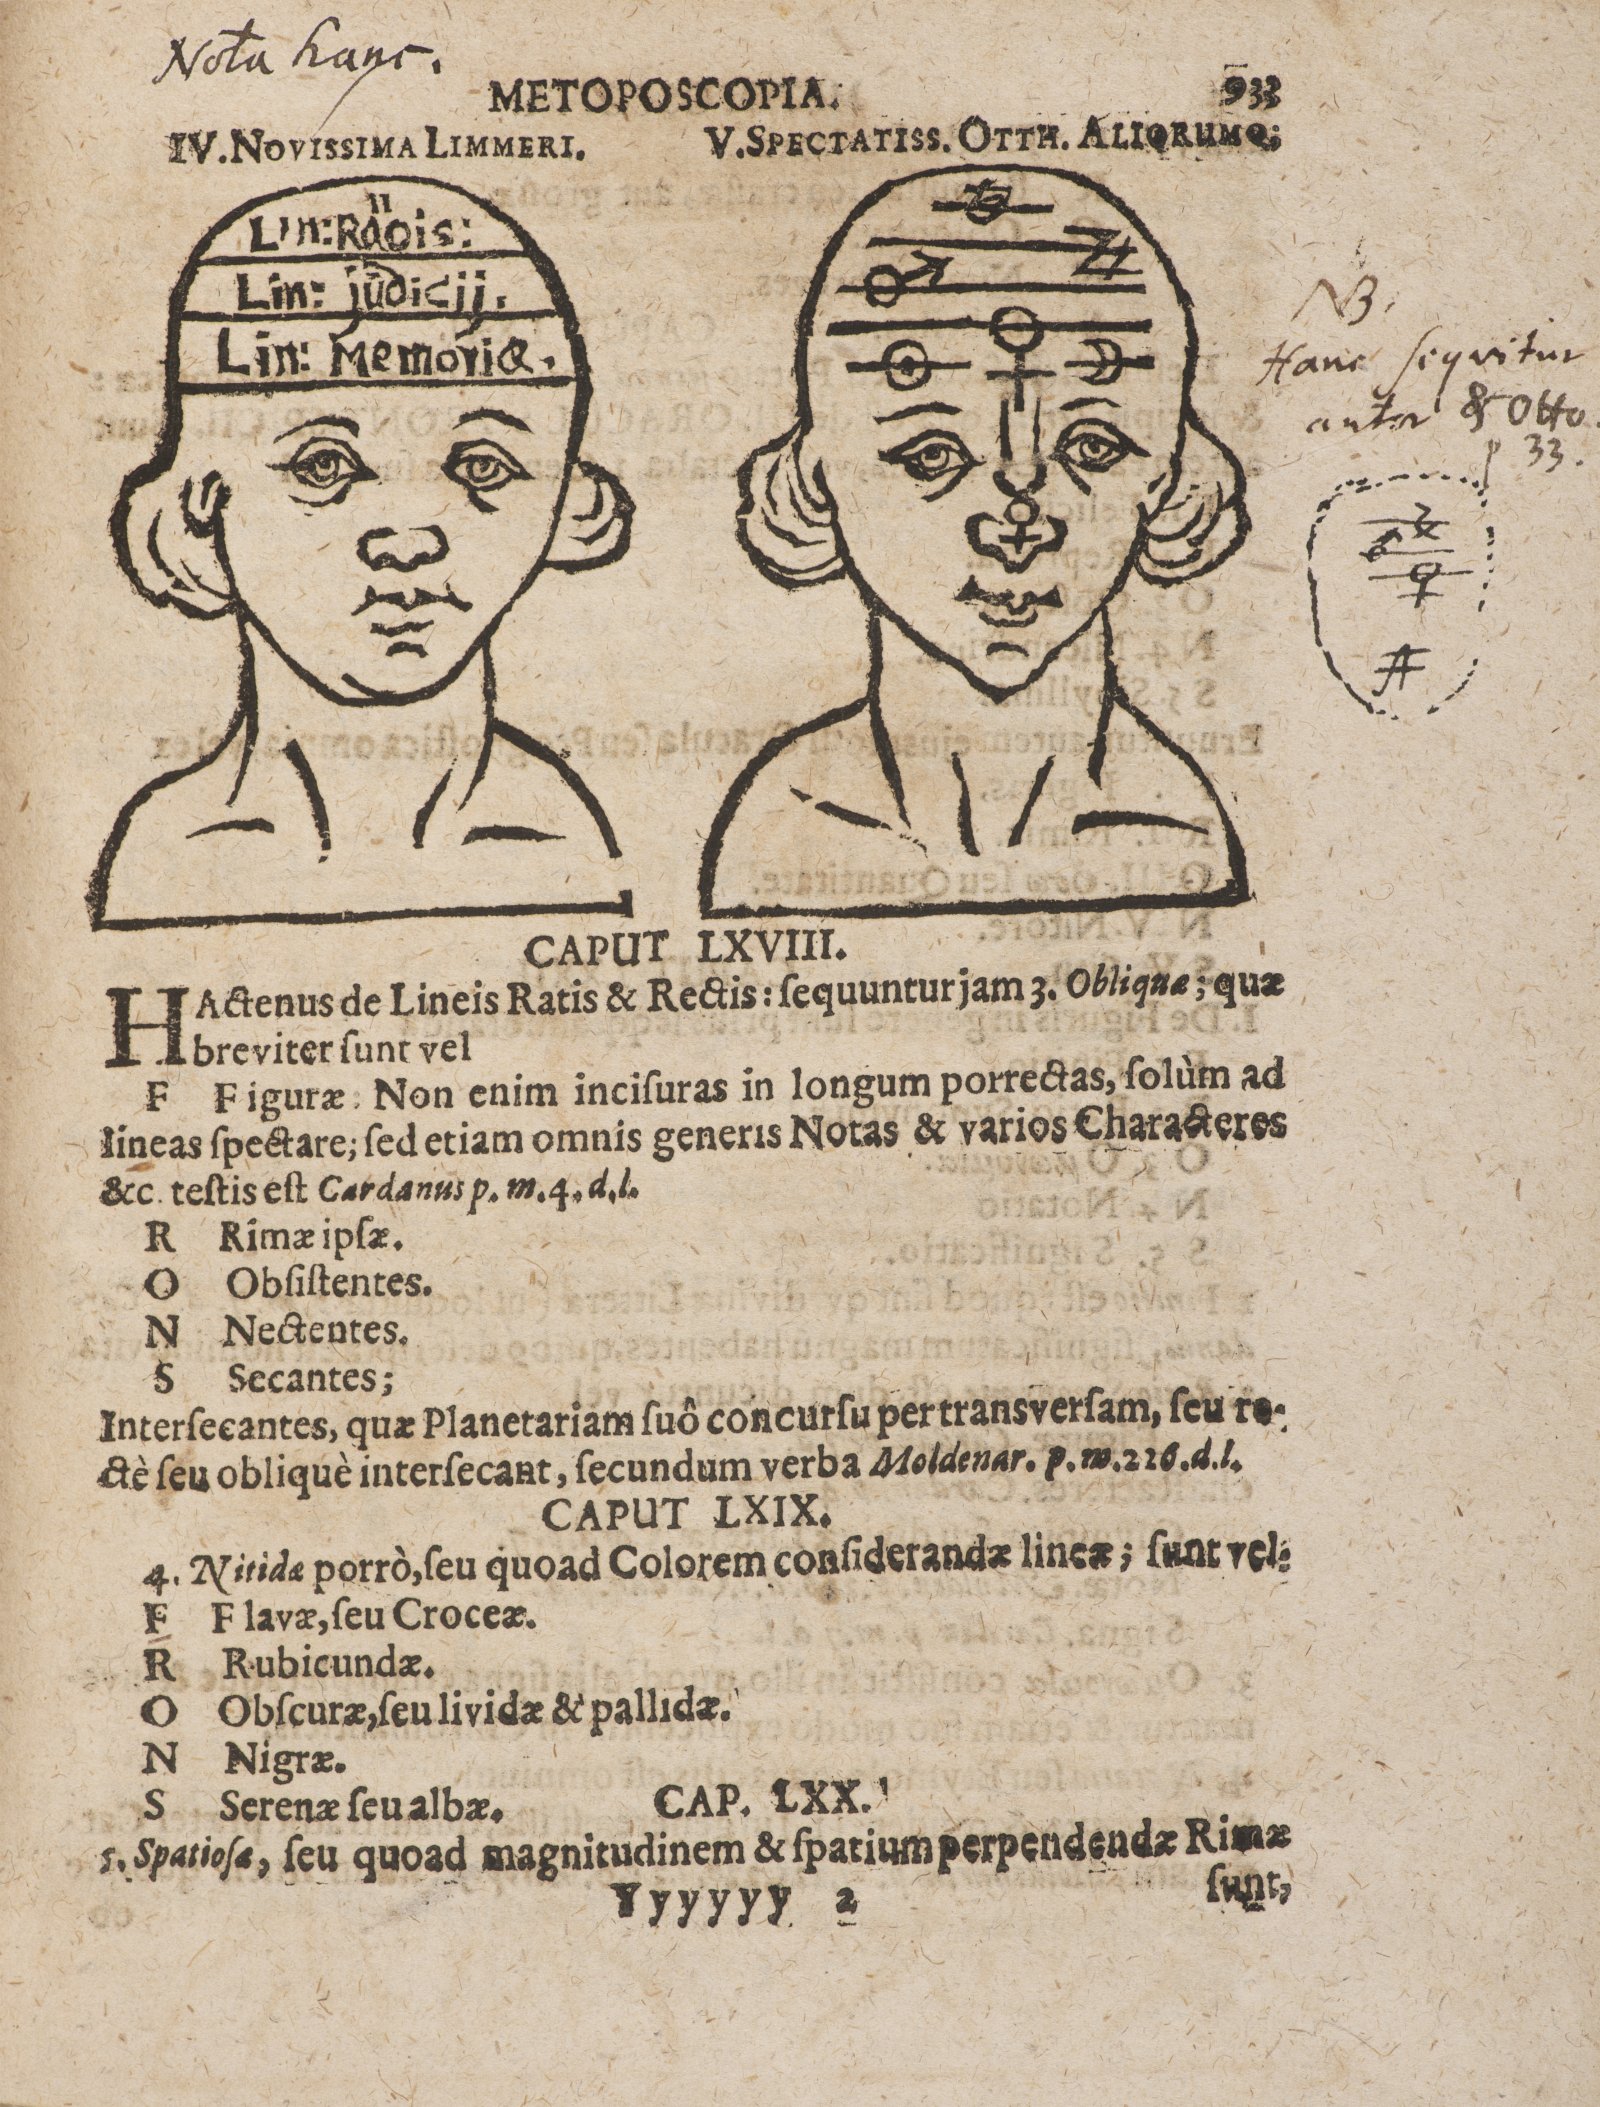 Nota hanc.
METOPOSCOPIA. 933
IV. NOVISSIMA LIMMERI. V. SPECTATISS. OTTH. ALIORUMQ;
Lin: Memoriæ.
Lin: judicij.
NB.
Hanc sequitur
autor & Otto
p 33.
CAPUT LXVIII.
HActenus de Lineis Ratis & Rectis: ſequuntur jam 3. Obliquæ; quæ
breviter ſunt vel
F Figuræ. Non enim inciſuras in longum porrectas, ſolùm ad
lineas ſpectare; ſed etiam omnis generis Notas & varios Characteres
&c. teſtis eſt Cardanus p. m. 4. d. l.
R Rimæ ipſæ.
O Obſiſtentes.
N Nectentes.
S Secantes;
Interſecantes, quæ Planetariam ſuô concurſu per transverſam, ſeu re-
ctè ſeu obliquè interſecant, ſecundum verba Moldenar. p. m. 226. d. l.
CAPUT LXIX.
4. Nitidæ porrò, ſeu quoad Colorem conſiderandæ lineæ; ſunt vel:
F Flavæ, ſeu Croceæ.
R Rubicundæ.
O Obſcuræ, ſeu lividæ & pallidæ.
N Nigræ.
S Serenæ ſeu albæ. CAP. LXX.
5. Spatioſæ, ſeu quoad magnitudinem & ſpatium perpendendæ Rimæ
Yyyyyy 2 ſunt,